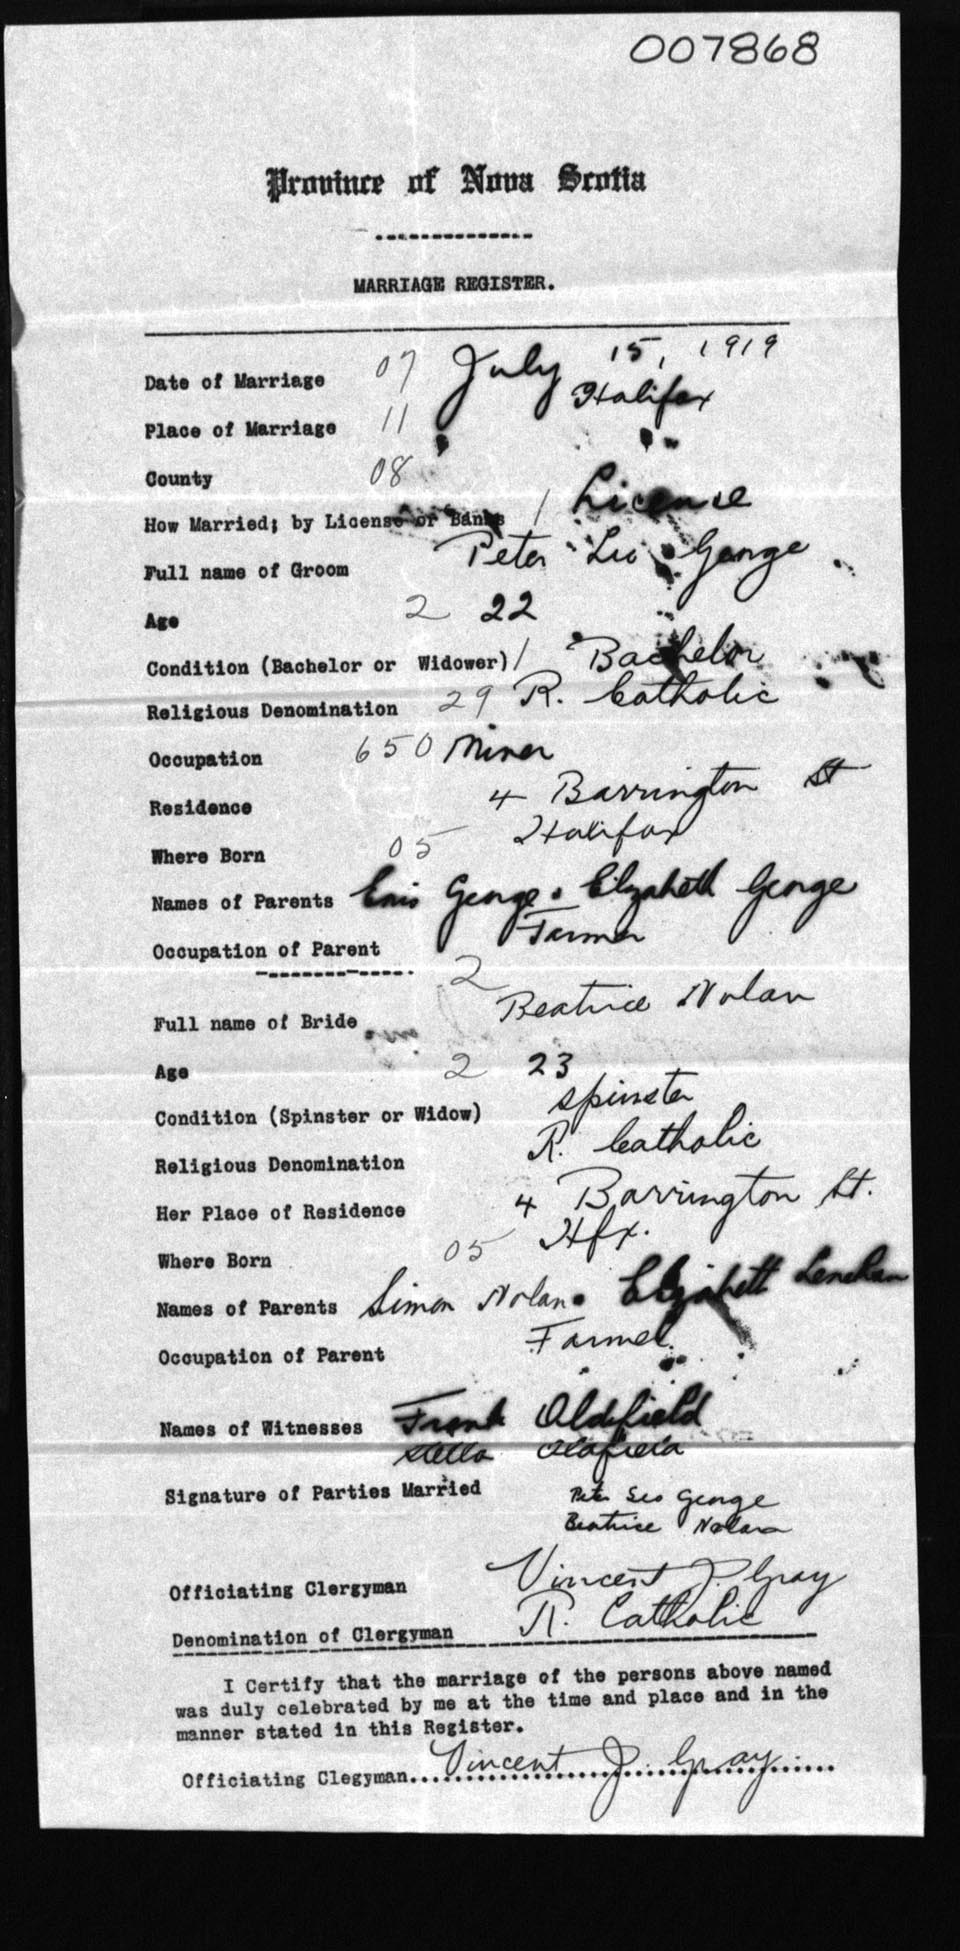 007868
Province of Nova Scotia
MARRIAGE REGISTER.
Date of Marriage 07 July 15, 1919
Place of Marriage 11 Halifax
County 08
How Married; by License or Banns 1 License
Full name of Groom Peter Leo George
Age 2 22
Condition (Bachelor or Widower) 1 Bachelor
Religious Denomination 29 R. Catholic
Occupation 650 Miner
Residence 4 Barrington St
Where Born 05 Halifax
Names of Parents George & Elizabeth George
Occupation of Parent Farmer
2
Full name of Bride Beatrice Nolan
Age 2 23
Condition (Spinster or Widow) spinster
Religious Denomination R. Catholic
Her Place of Residence 4 Barrington St.
Where Born 05 Hfx.
Names of Parents Simon Nolan Elizabeth Lenehan
Occupation of Parent Farmer
Names of Witnesses Frank Oldfield
Stella Oldfield
Signature of Parties Married Peter Leo George
Beatrice Nolan
Officiating Clergyman Vincent J. Gray
Denomination of Clergyman R. Catholic
I Certify that the marriage of the persons above named
was duly celebrated by me at the time and place and in the
manner stated in this Register.
Officiating Clegyman Vincent J. Gray